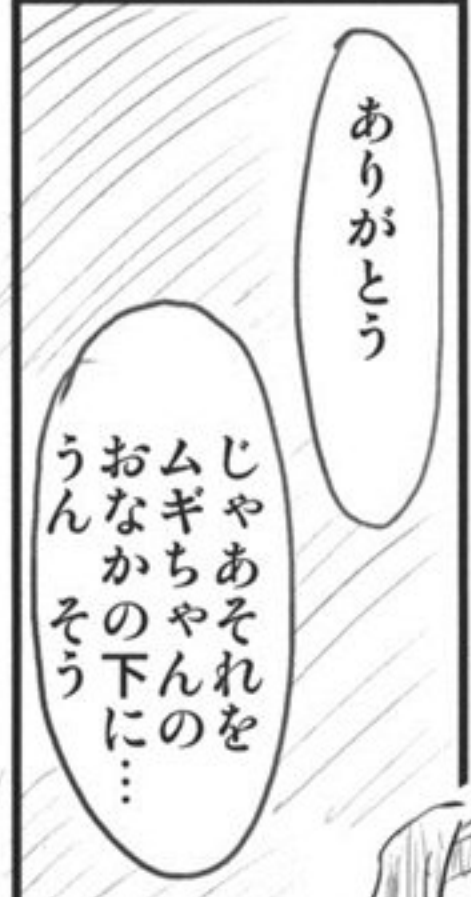 ありがとう
じゃあそれを
ムギちゃんの
おなかの下に…
うん　そう